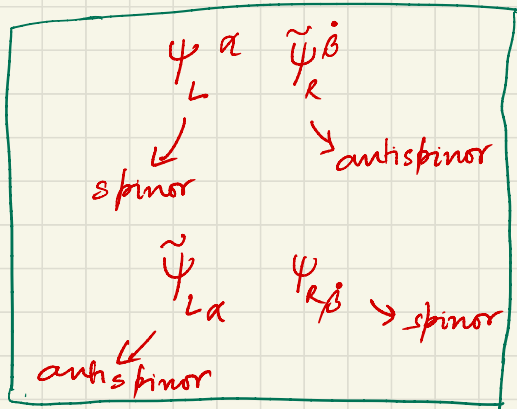 ψ_L^α ψ̃_R^β̇
spinor antispinor
ψ̃_{Lα} ψ_{Rβ̇} → spinor
antispinor